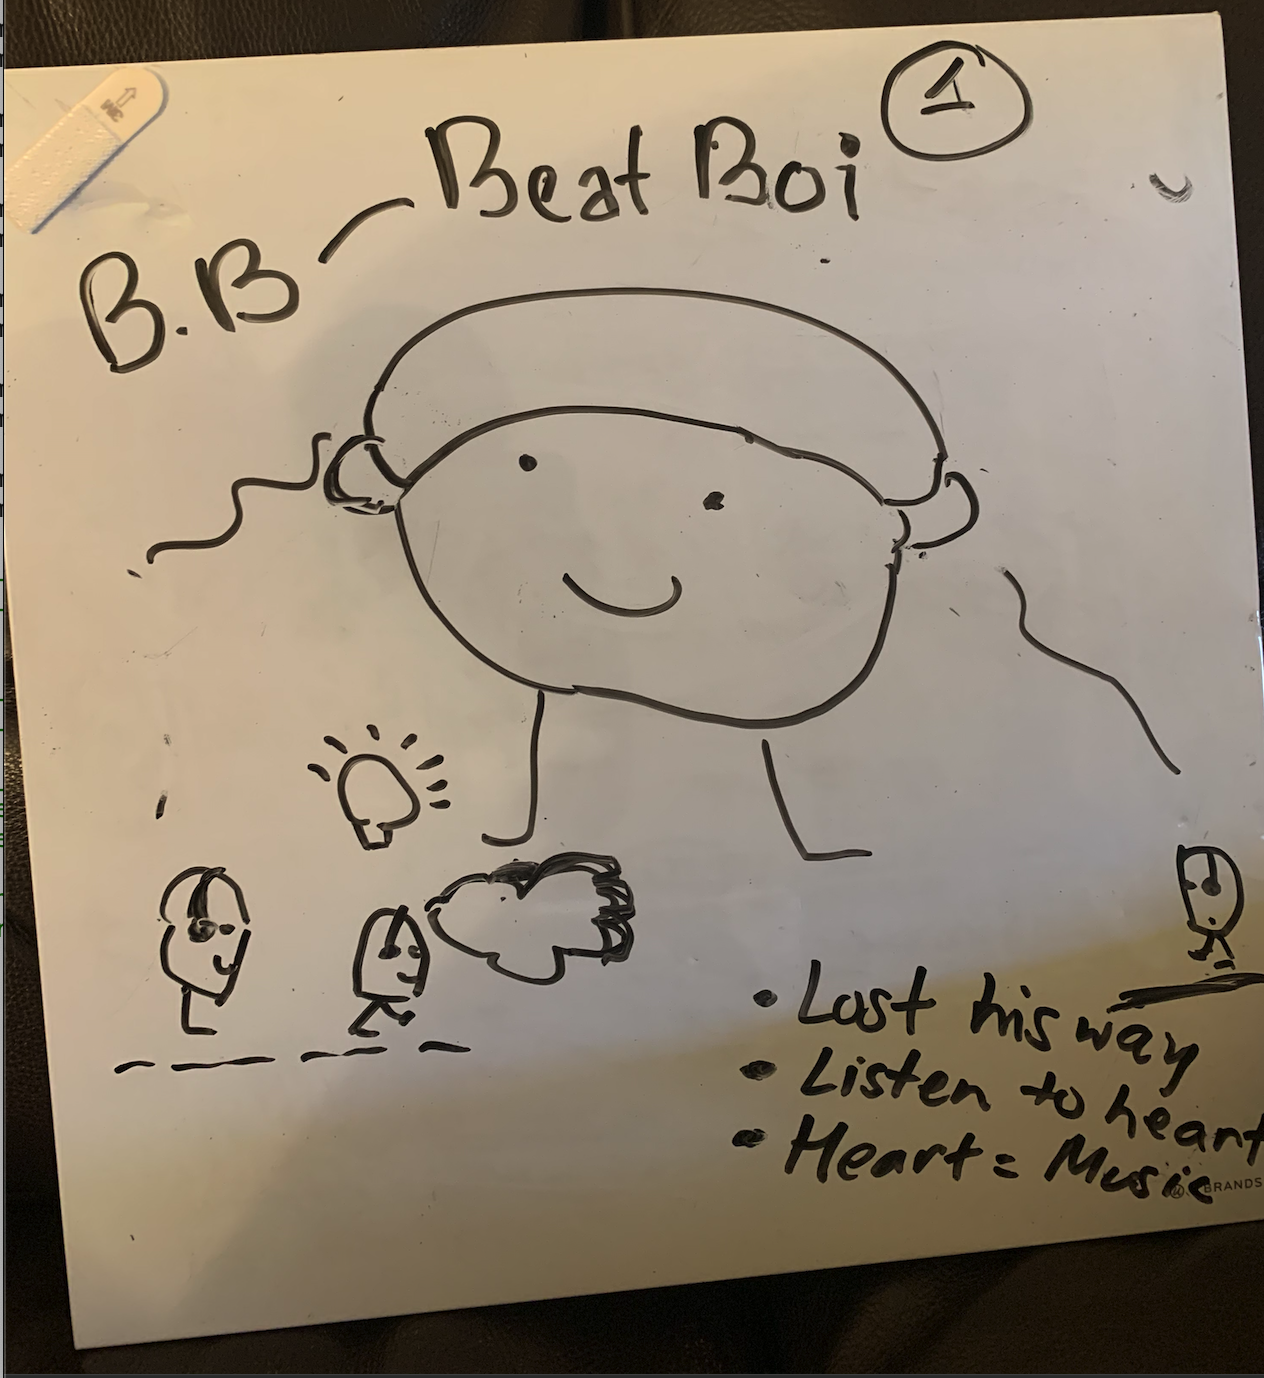 1
Beat Boi
B.B
• Lost his way
• Listen to heart
• Heart = Music
BRANDS